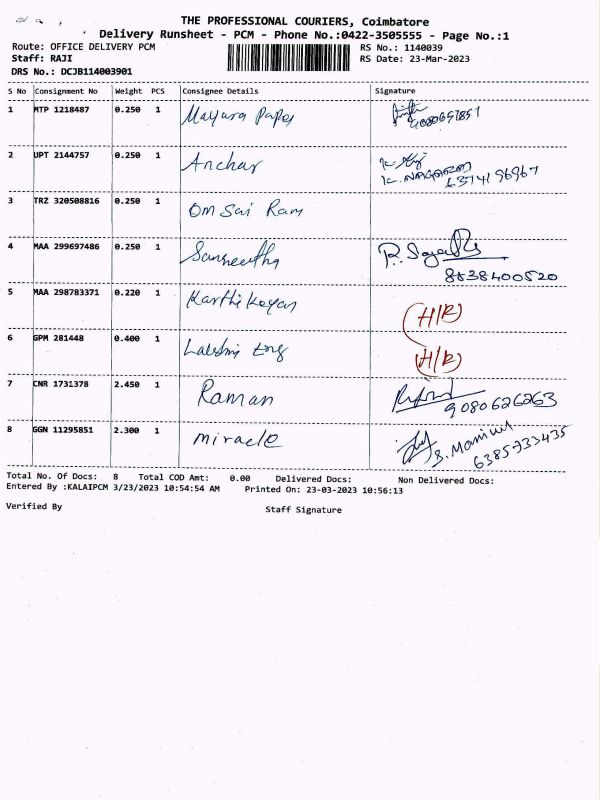 THE PROFESSIONAL COURIERS, Coimbatore
Delivery Runsheet - PCM - Phone No.:0422-3505555 - Page No.:1
Route: OFFICE DELIVERY PCM RS No.: 1140039
Staff: RAJI RS Date: 23-Mar-2023
DRS No.: DCJB114003901
S No Consignment No Weight PCS Consignee Details Signature
1 MTP 1218487 0.250 1 Mayura Paper
2 UPT 2144757 0.250 1 Anchar
K. NAGARAJ
6374196967
3 TRZ 320508816 0.250 1 Om Sai Ram
4 MAA 299697486 0.250 1 Sangeetha
8838400520
5 MAA 298783371 0.220 1 Karthikeyan (H/R)
6 GPM 281448 0.400 1 Lakshmi Eng (H/R)
7 CNR 1731378 2.450 1 Raman
9080626263
8 GGN 11295851 2.300 1 miracle
6385933435
Total No. Of Docs: 8 Total COD Amt: 0.00 Delivered Docs: Non Delivered Docs:
Entered By :KALAIPCM 3/23/2023 10:54:54 AM Printed On: 23-03-2023 10:56:13
Verified By Staff Signature